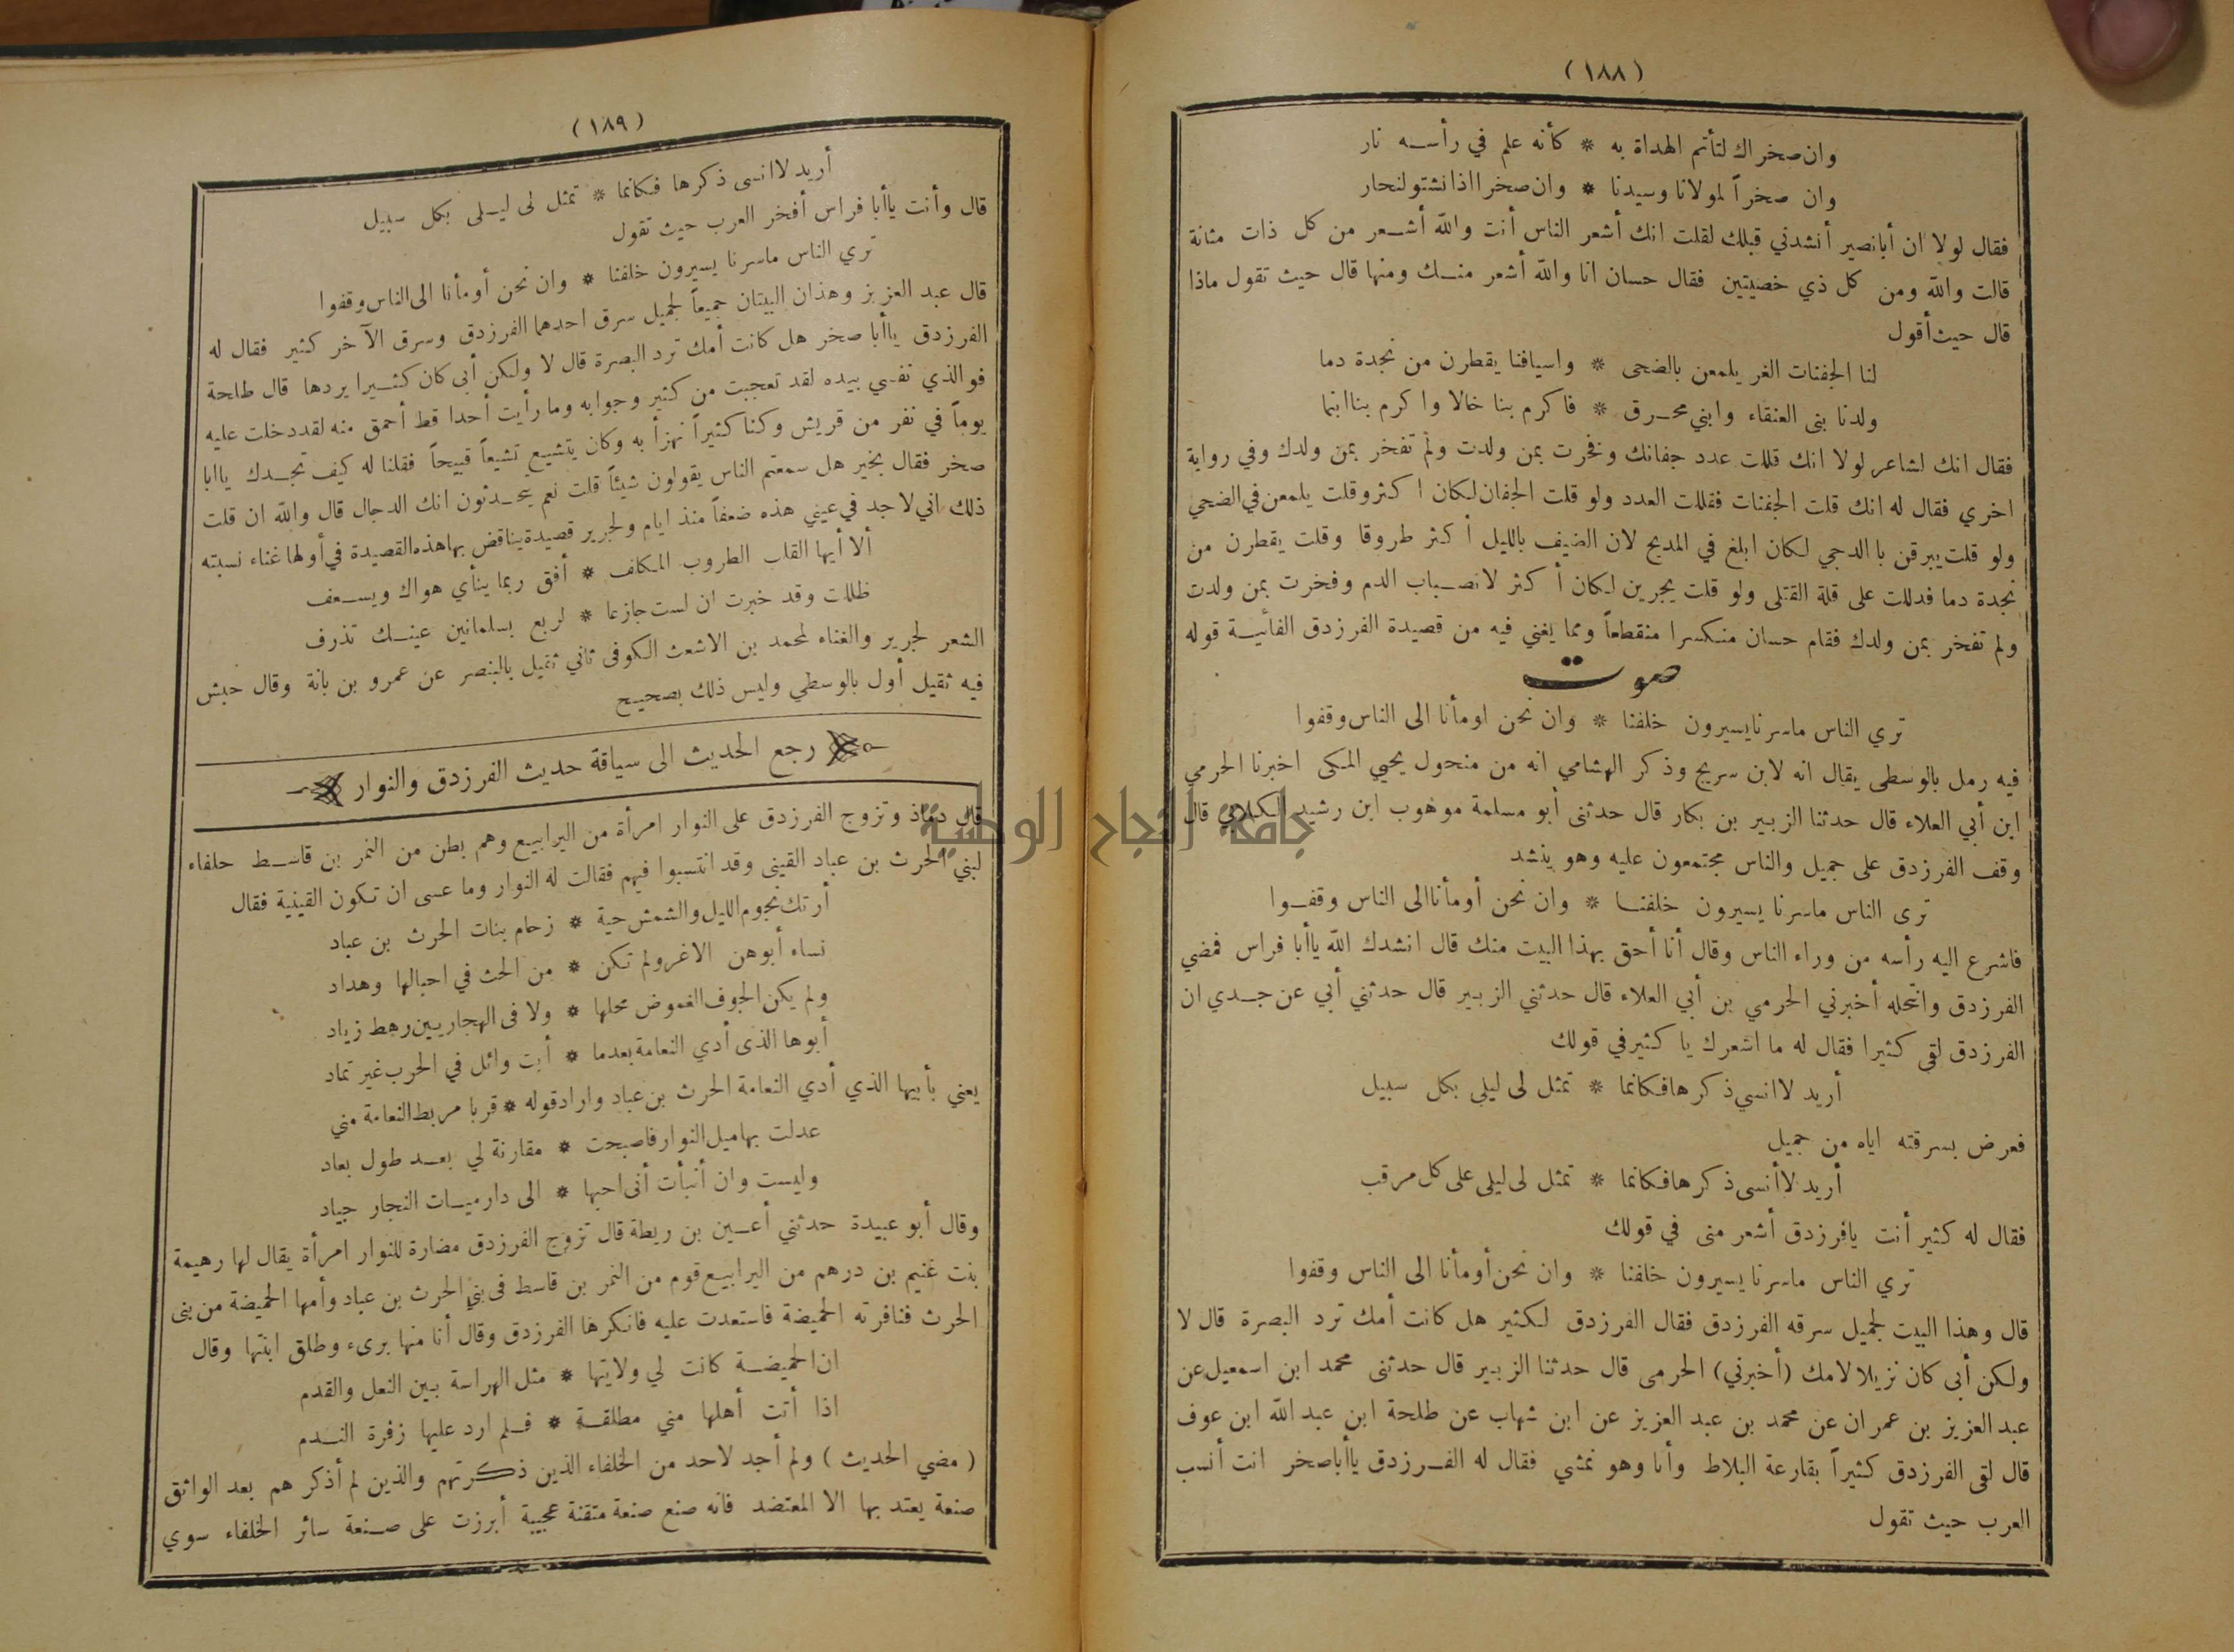 (١٨٨)
وان صخراً لتأتم الهداة به * كأنه علم في رأسه نار
وان صخراً لمولانا وسيدنا * وان صخرا اذا نشتو لنحار
فقال لولا ان أبا نصير أنشدني قبلك لقلت انك أشعر الناس أنت والله أشعر من كل ذات مثانة
قالت والله ومن كل ذي خصيتين فقال حسان انا والله أشعر منك ومنها قال حيث تقول ماذا
قال حيث أقول
لنا الجفنات الغر يلمعن بالضحى * واسيافنا يقطرن من نجدة دما
ولدنا بنى العنقاء وابني محرق * فاكرم بنا خالا واكرم بنا ابنما
فقال انك لشاعر لولا انك قللت عدد جفانك وفخرت بمن ولدت ولم تفخر بمن ولدك وفي رواية
اخري فقال له انك قلت الجفنات فقللت العدد ولو قلت الجفان لكان اكثر وقلت يلمعن في الضحي
ولو قلت يبرقن بالدجي لكان ابلغ في المديح لان الضيف بالليل أكثر طروقا وقلت يقطرن من
نجدة دما فدللت على قلة القتلى ولو قلت يجرين لكان أكثر لانصباب الدم وفخرت بمن ولدت
ولم تفخر بمن ولدك فقام حسان منكسرا منقطعاً ومما يغني فيه من قصيدة الفرزدق الفائية قوله
صوت
تري الناس ما سرنا يسيرون خلفنا * وان نحن اومأنا الى الناس وقفوا
فيه رمل بالوسطى يقال انه لابن سريج وذكر الهشامي انه من منحول يحيي المكى اخبرنا الحرمي
ابن أبي العلاء قال حدثنا الزبير بن بكار قال حدثنى أبو مسلمة موهوب ابن رشيد الكلابي قال
وقف الفرزدق على جميل والناس مجتمعون عليه وهو ينشد
ترى الناس ما سرنا يسيرون خلفنا * وان نحن أومأنا الى الناس وقفوا
فاشرع اليه رأسه من وراء الناس وقال أنا أحق بهذا البيت منك قال انشدك الله ياأبا فراس فمضي
الفرزدق وانتحله أخبرني الحرمي بن أبي العلاء قال حدثني الزبير قال حدثني أبي عن جدي ان
الفرزدق لقى كثيرا فقال له ما اشعرك يا كثير في قولك
أريد لا انسي ذكرها فكانما * تمثل لى ليلى بكل سبيل
فعرض بسرقته اياه من جميل
أريد لا أنسى ذكرها فكانما * تمثل لى ليلى على كل مرقب
فقال له كثير أنت يافرزدق أشعر منى في قولك
تري الناس ما سرنا يسيرون خلفنا * وان نحن أومأنا الى الناس وقفوا
قال وهذا البيت لجميل سرقه الفرزدق فقال الفرزدق لكثير هل كانت أمك ترد البصرة قال لا
ولكن أبى كان نزيلا لامك (أخبرني) الحرمى قال حدثنا الزبير قال حدثنى محمد ابن اسمعيل عن
عبد العزيز بن عمران عن محمد بن عبد العزيز عن ابن شهاب عن طلحة ابن عبد الله ابن عوف
قال لقى الفرزدق كثيراً بقارعة البلاط وأنا وهو نمشي فقال له الفرزدق ياأبا صخر انت أنسب
العرب حيث تقول
(١٨٩)
أريد لا انسى ذكرها فكانما * تمثل لى ليلى بكل سبيل
قال وأنت ياأبا فراس أفخر العرب حيث تقول
تري الناس ما سرنا يسيرون خلفنا * وان نحن أومأنا الى الناس وقفوا
قال عبد العزيز وهذان البيتان جميعاً لجميل سرق احدهما الفرزدق وسرق الآخر كثير فقال له
الفرزدق ياأبا صخر هل كانت أمك ترد البصرة قال لا ولكن أبى كان كثيرا يردها قال طلحة
فوالذي نفسي بيده لقد تعجبت من كثير وجوابه وما رأيت أحدا قط أحمق منه لقد دخلت عليه
يوماً في نفر من قريش وكنا كثيراً نهزأ به وكان يتشيع تشيعاً قبيحاً فقلنا له كيف تجدك ياابا
صخر فقال بخير هل سمعتم الناس يقولون شيئاً قلت نعم يحدثون انك الدجال قال والله ان قلت
ذلك اني لاجد في عيني هذه ضعفاً منذ ايام ولجرير قصيدة يناقض بها هذه القصيدة في أولها غناء نسبته
ألا أيها القلب الطروب المكلف * أفق ربما ينأي هواك ويسعف
ظللت وقد خبرت ان لست جازعا * لربع بسلمانين عينك تذرف
الشعر لجرير والغناء لمحمد بن الاشعث الكوفى ثاني ثقيل بالبنصر عن عمرو بن بانة وقال حبش
فيه ثقيل أول بالوسطي وليس ذلك بصحيح
رجع الحديث الى سياقة حديث الفرزدق والنوار
قال دماذ وتزوج الفرزدق على النوار امرأة من اليرابيع وهم بطن من النمر بن قاسط حلفاء
لبني الحرث بن عباد القينى وقد انتسبوا فيهم فقالت له النوار وما عسى ان تكون القينية فقال
أرتك نجوم الليل والشمش حية * زحام بنات الحرث بن عباد
نساء أبوهن الاغر ولم تكن * من الحث في احبالها وهداد
ولم يكن الجوف الغموض محلها * ولا فى الهجاريين رهط زياد
أبوها الذى أدي النعامة بعدما * أبت وائل في الحرب غير تماد
يعني بأبيها الذي أدي النعامة الحرث بن عباد واراد قوله * قربا مربط النعامة مني
عدلت بها ميل النوار فاصبحت * مقارنة لي بعد طول بعاد
وليست وان أنبأت أنى احبها * الى دارميات النجار جياد
وقال أبو عبيدة حدثني أعين بن ريطة قال تزوج الفرزدق مضارة للنوار امرأة يقال لها رهيمة
بنت غنيم بن درهم من اليرابيع قوم من النمر بن قاسط فى بني الحرث بن عباد وأمها الحميضة من بنى
الحرث فنافرته الحميضة فاستعدت عليه فانكرها الفرزدق وقال أنا منها برىء وطلق ابنتها وقال
ان الحميضة كانت لي ولابنتها * مثل الهراسة بين النعل والقدم
اذا أتت أهلها مني مطلقة * فلم ارد عليها زفرة الندم
( مضي الحديث ) ولم أجد لاحد من الخلفاء الذين ذكرتهم والذين لم أذكرهم بعد الواثق
صنعة يعتد بها الا المعتضد فانه صنع صنعة متقنة عجيبة أبرزت على صنعة سائر الخلفاء سوي
جامعة النجاح الوطنية